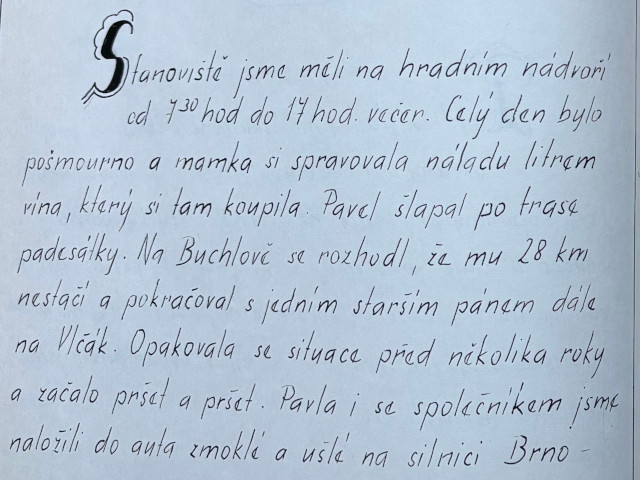 Stanoviště jsme měli na hradním nádvoří
od 7³⁰ hod do 17 hod. večer. Celý den bylo
pošmourno a mamka si spravovala náladu litrem
vína, který si tam koupila. Pavel šlapal po trase
padesátky. Na Buchlově se rozhodl, že mu 28 km
nestačí a pokračoval s jedním starším pánem dále
na Vlčák. Opakovala se situace před několika roky
a začalo pršet a pršet. Pavla i se společníkem jsme
naložili do auta zmoklé a ušlé na silnici Brno -